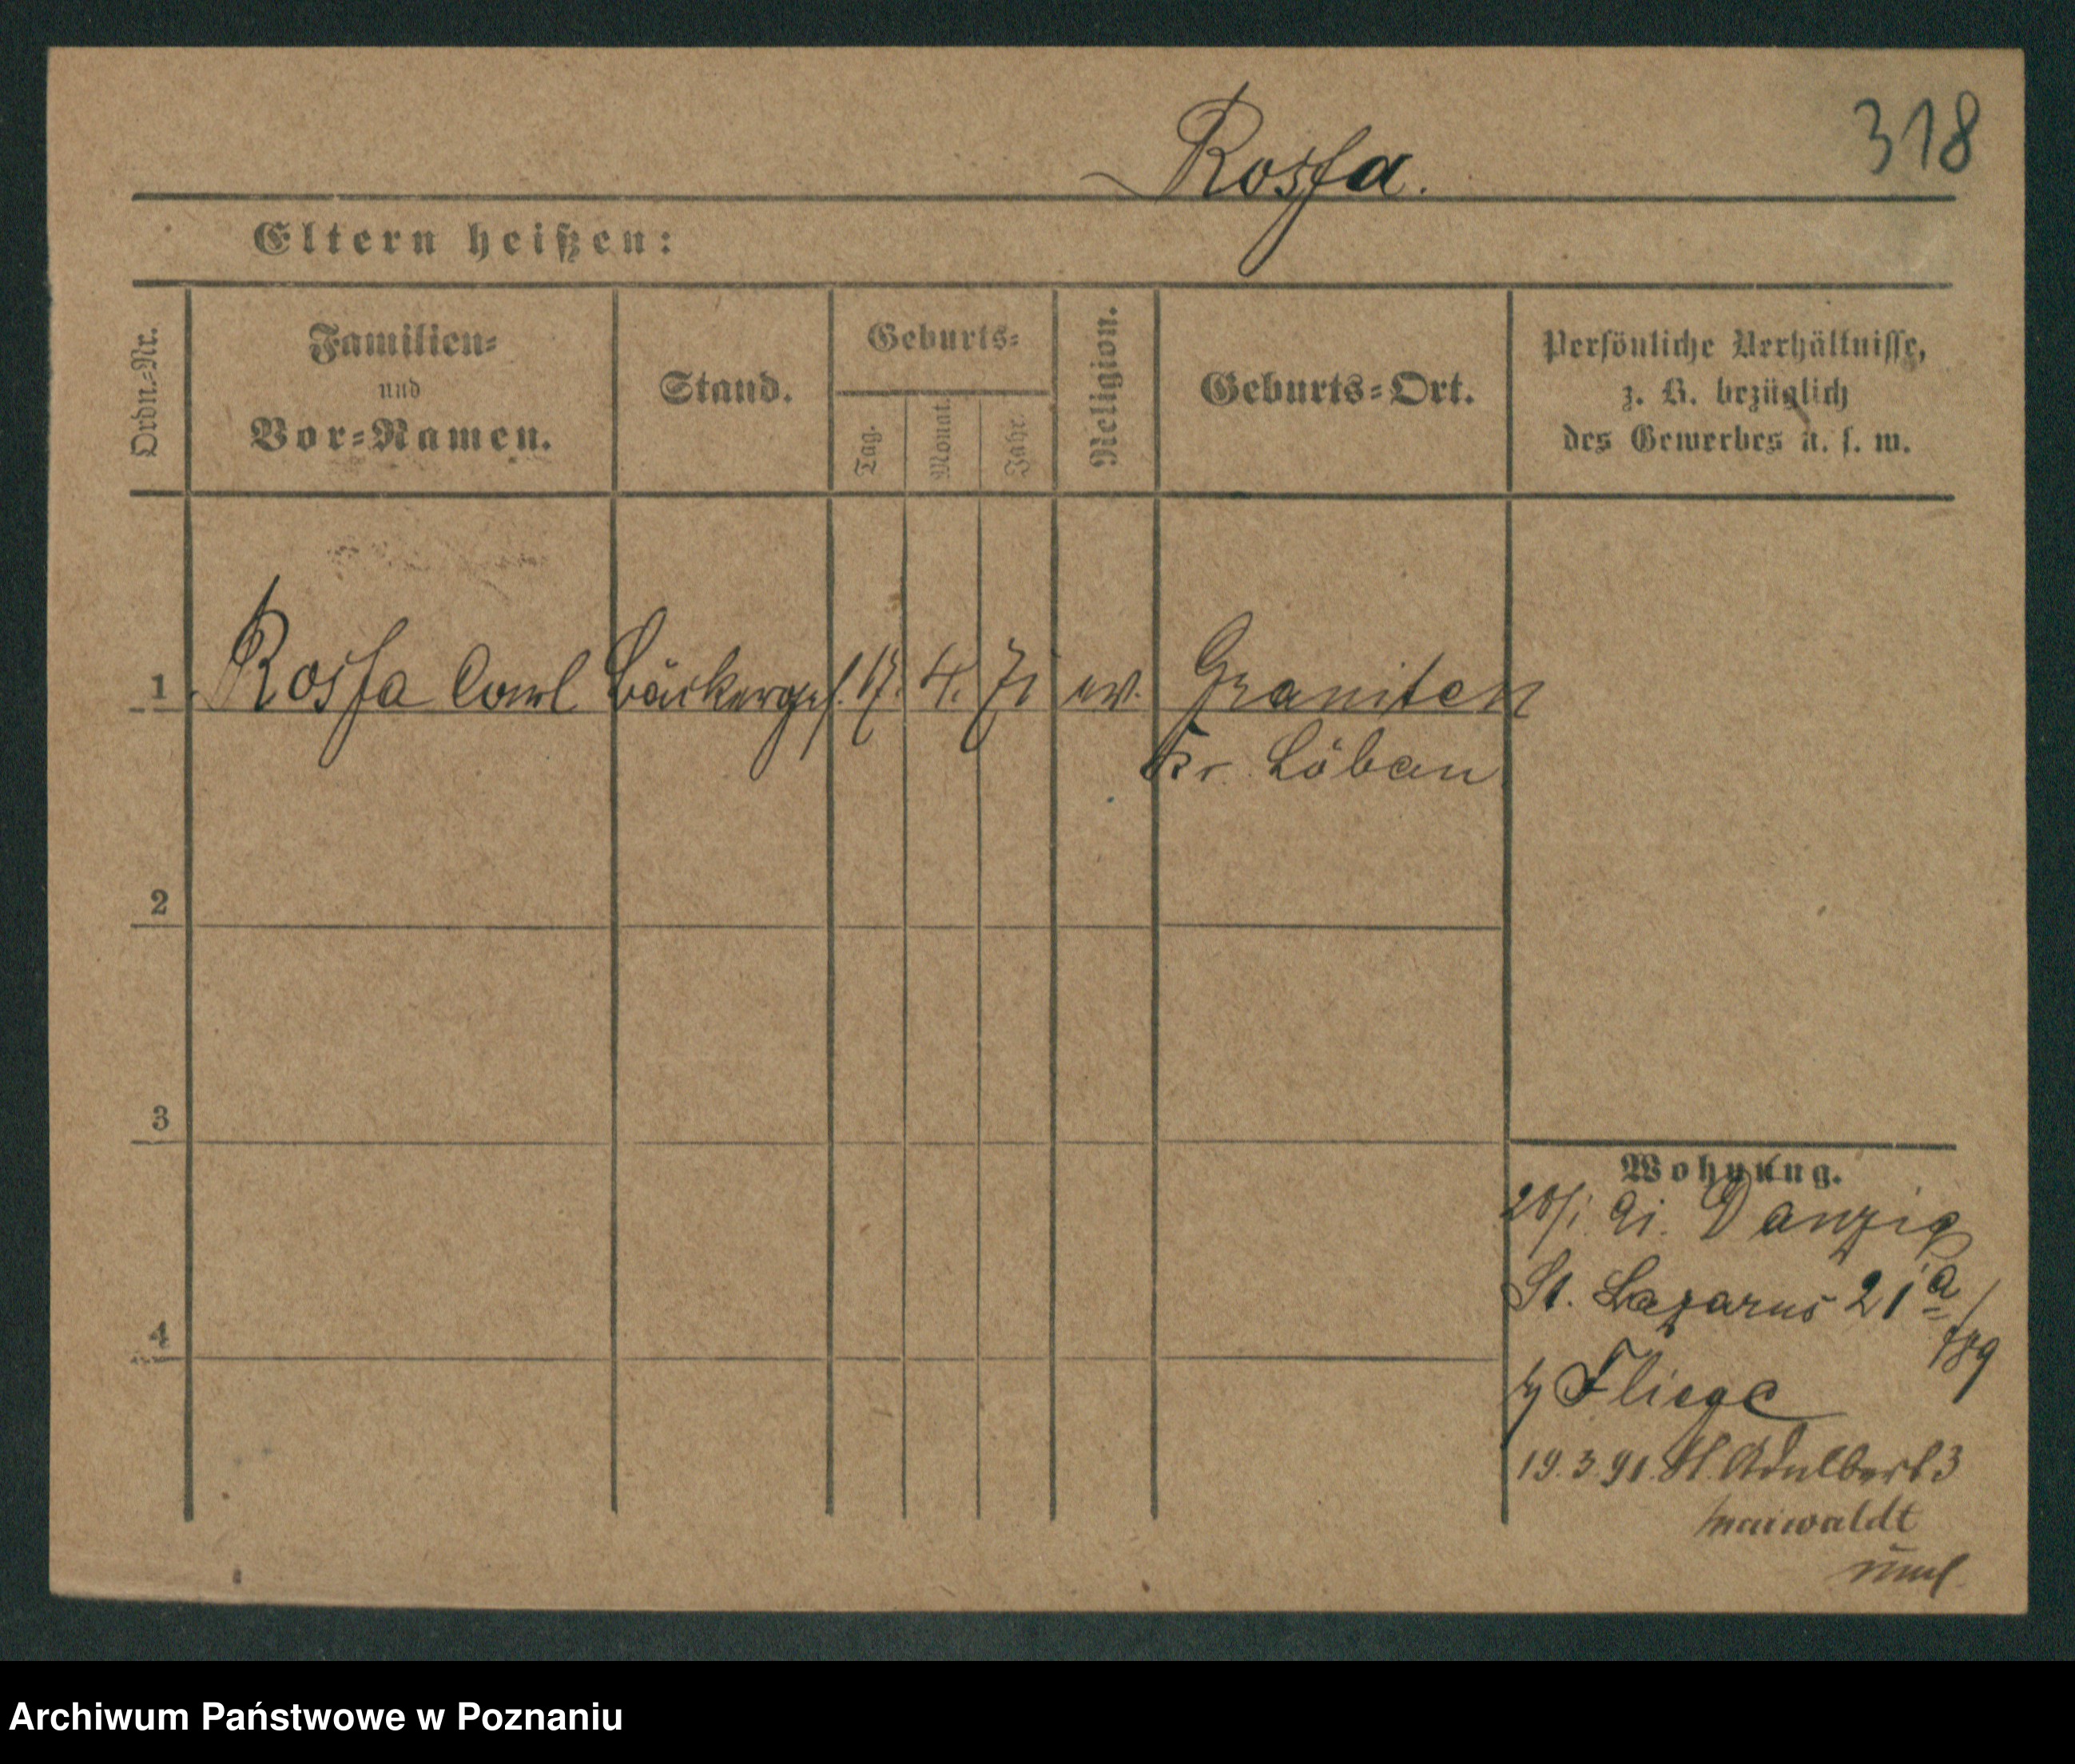 318
Rossa.
Eltern heißen:
Ordn.-Nr.
Familien-
und
Vor-Namen.
Stand.
Geburts-
Tag.
Monat.
Jahr.
Religion.
Geburts-Ort.
Persönliche Verhältnisse,
z. B. bezüglich
des Gewerbes u. s. w.
1 Rossa Carl Bäckerges. 17. 4. 71 ev. Graniten
Kr. Löbau
2
3
4
Wohnung.
91. Danzig
St. Lazarus 21a
/89
Fliege
19.3.91. St. Adalbert 3
Maiwaldt